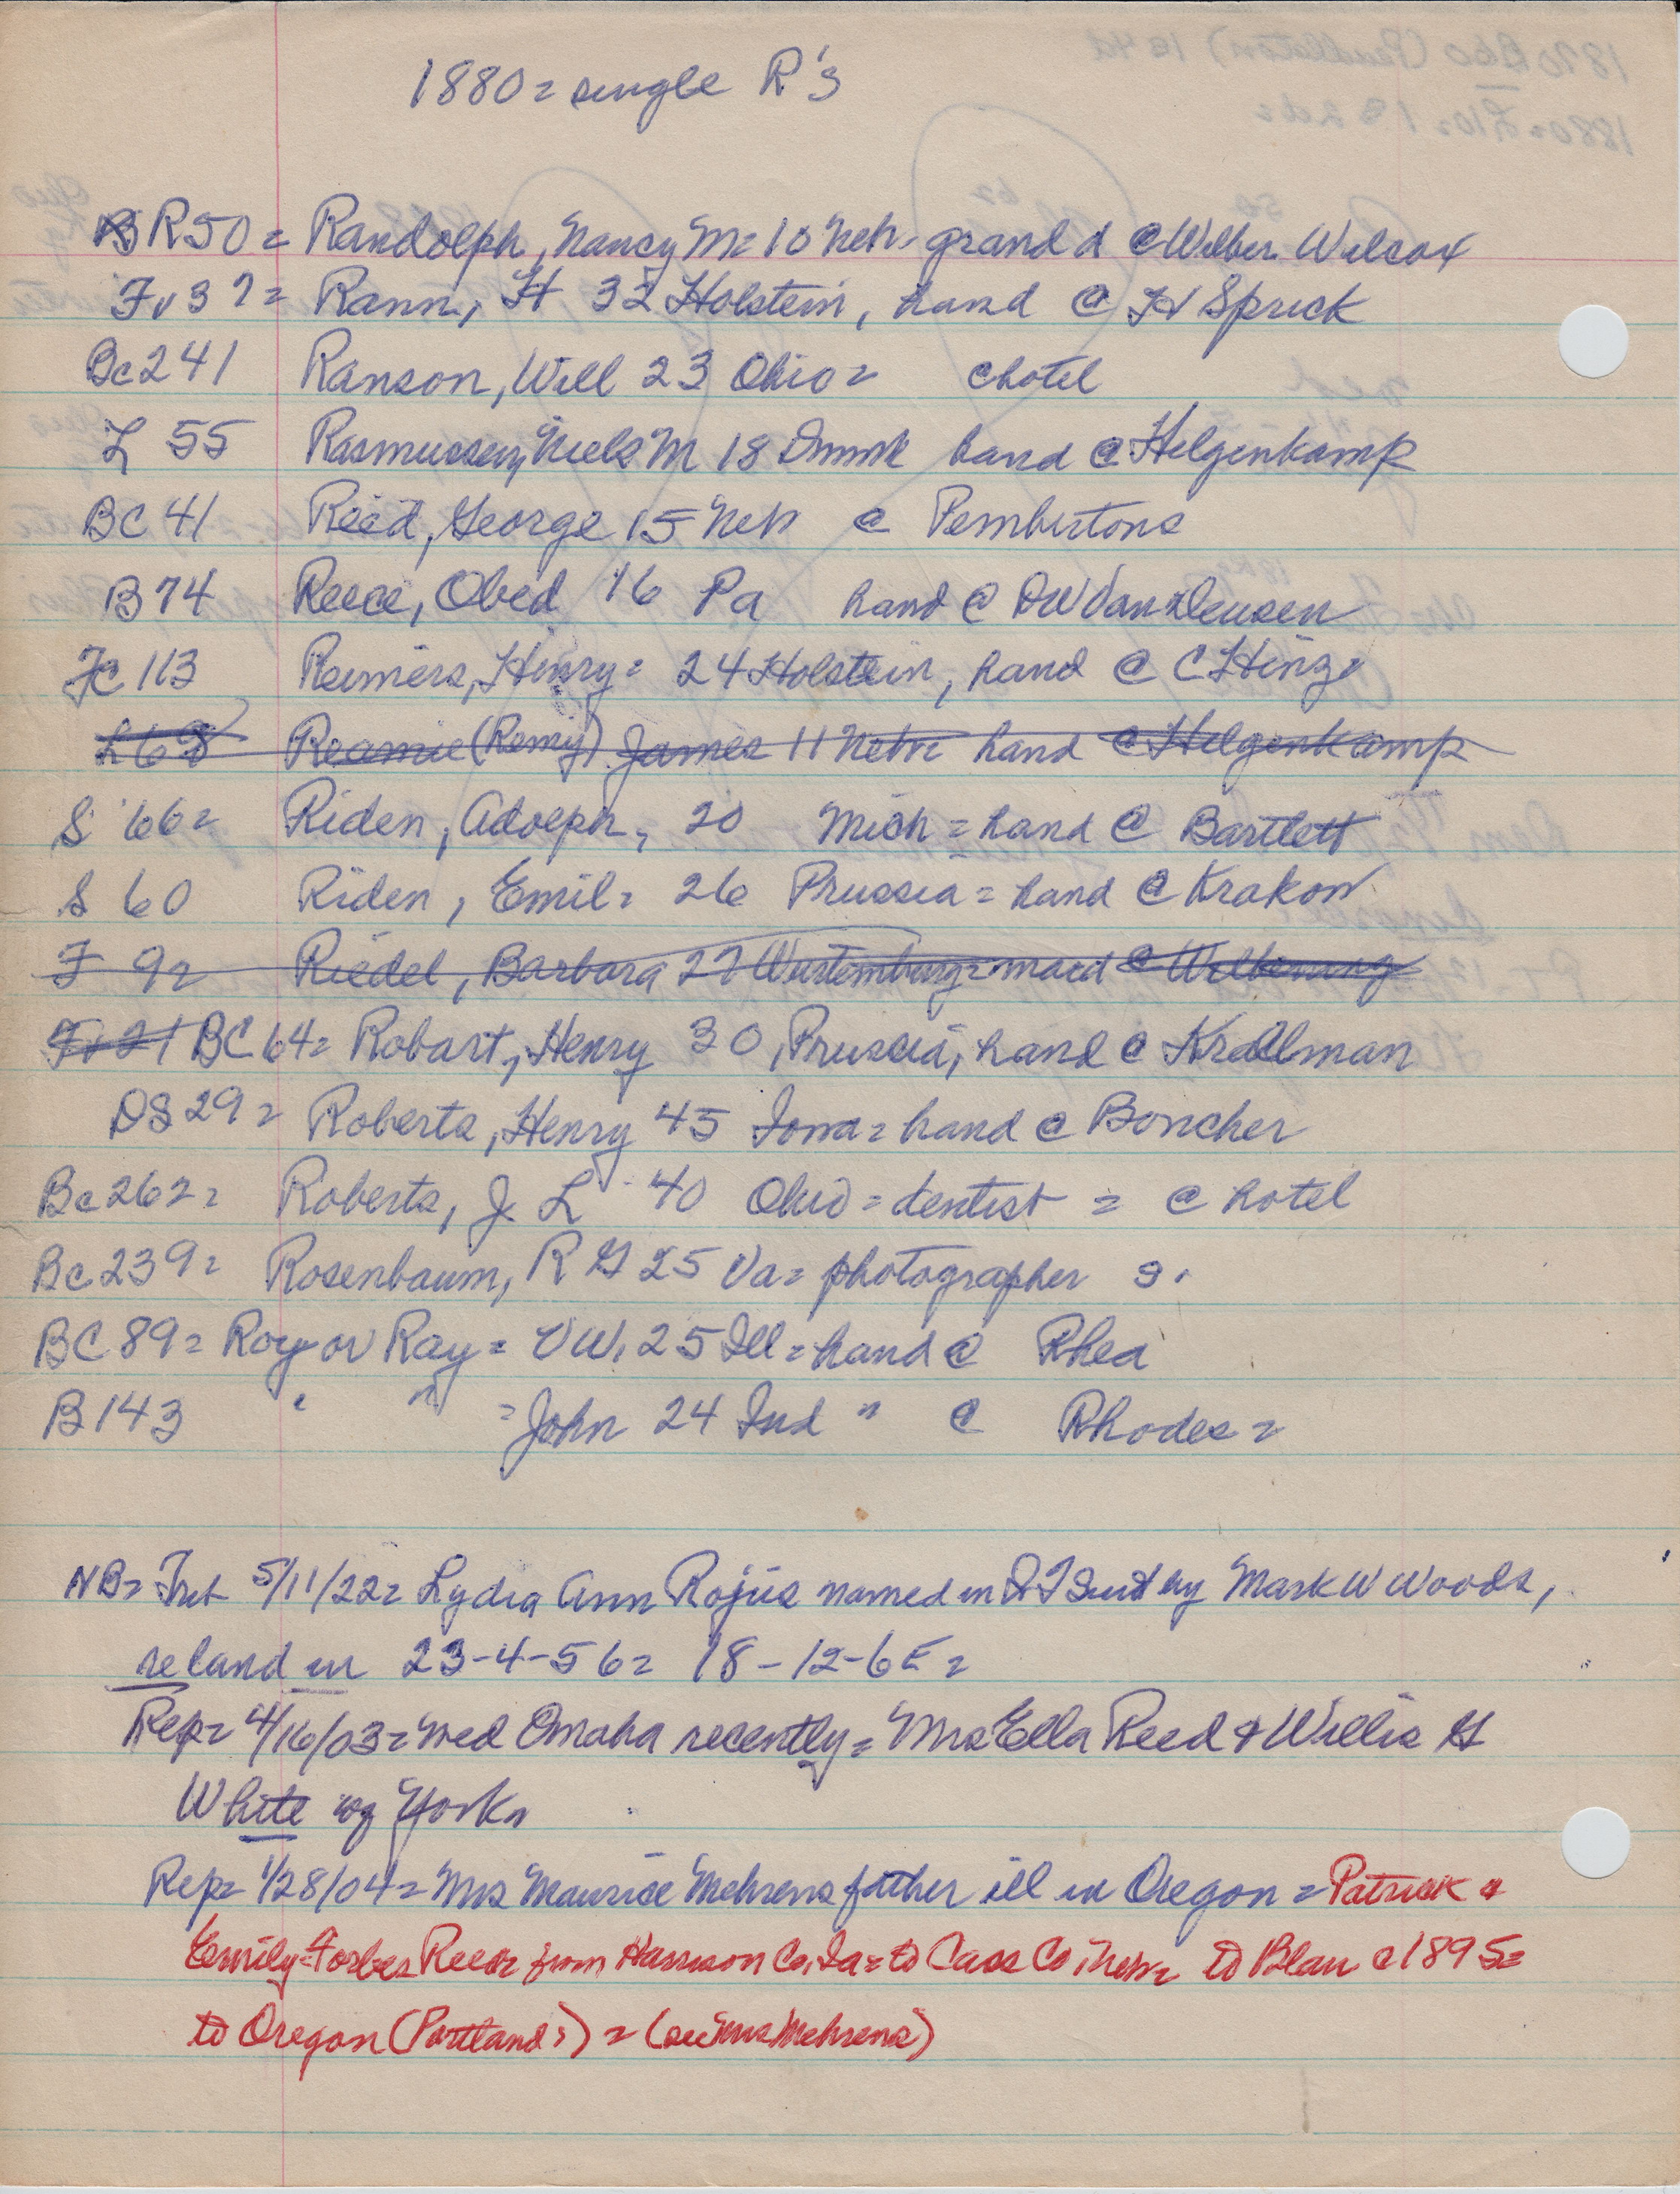 1880 = single R's
R50 = Randolph, Nancy M = 10 Neb. grand d @ Wilber Wilcox
Fv 37 = Rann, H 32 Holstein, hand @ H Sprick
Bc 241 Ranson, Will 23 Ohio = @ hotel
L 55 Rasmussen, Niels M 18 Dnmk hand @ Helgenkamp
BC 41 Reed, George 15 Neb @ Pembertons
B 74 Reece, Obed 16 Pa hand @ DW Van Deusen
Fc 113 Reimers, Henry = 24 Holstein, hand @ C Hinz =
L 68 Reamie (Remy) James 11 Nebr hand @ Helgenkamp
S 66 = Riden, Adolph, 20 Mich = hand @ Bartlett
S 60 Riden, Emil = 26 Prussia = hand @ Krakow
F 92 Riedel, Barbara 27 Wurtemburg = maid @
Fv 21 BC 64 = Robart, Henry 30, Prussia, hand @ Krallman
DS 29 = Roberts, Henry 45 Iowa = hand @ Boncher
Bc 262 = Roberts, J L 40 Ohio = dentist = @ hotel
Bc 239 = Rosenbaum, R G 25 Va = photographer s.
BC 89 = Roy or Ray = VW. 25 Ill = hand @ Rhea
B 143 " " = John 24 Ind " @ Rhodes =
NB = 5/11/22 = Lydia Ann Rojus named in Suit by Mark W Woods,
re land in 23-4-56 = 18-12-6E =
Rep = 4/16/03 = wed Omaha recently = Mrs Ella Reed & Willis G
White of York
Rep = 1/28/04 = Mrs Maurice Mehrens father ill in Oregon = Patrick &
Emily Forbes from Harrison Co, Ia = to Cass Co, Neb = to Blair c 1895 =
to Oregon (Portland?) = (see Mrs Mehrens)